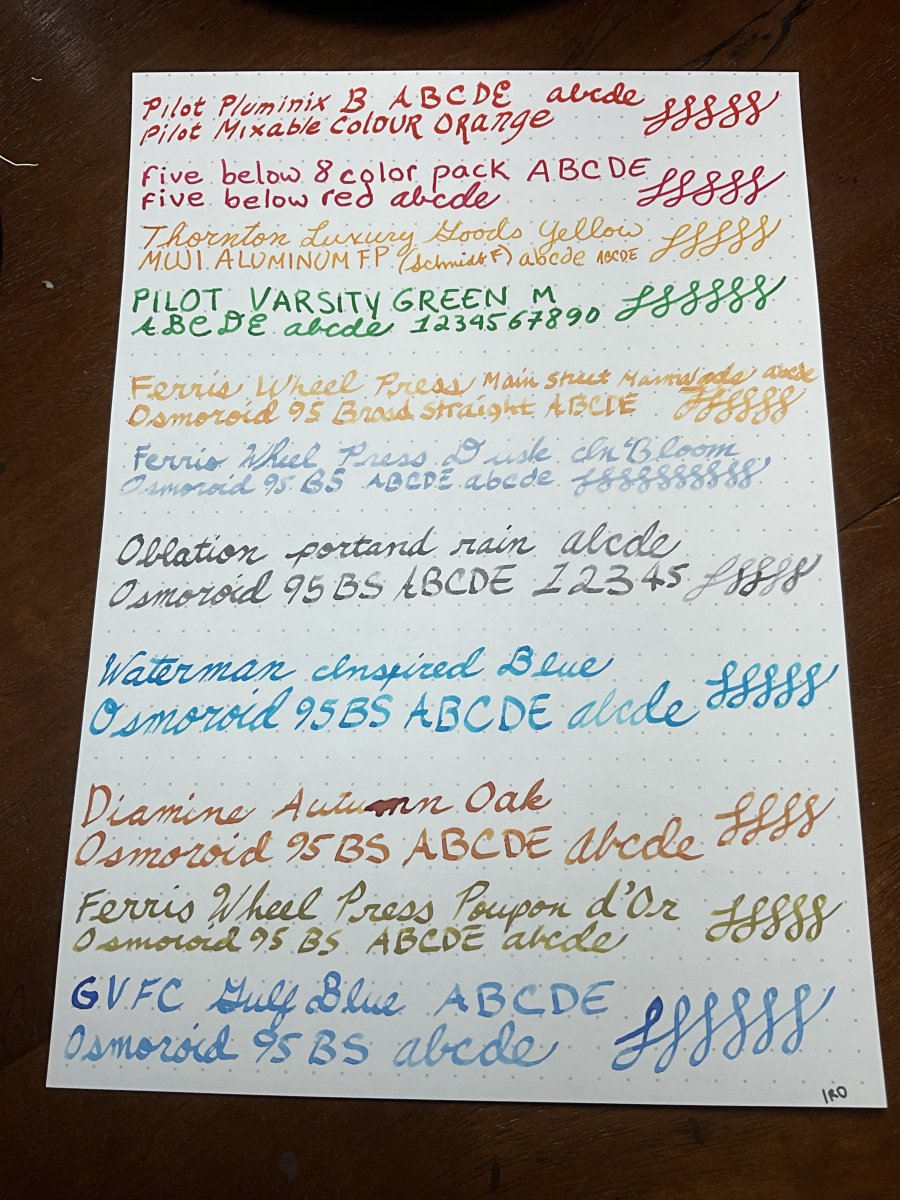 Pilot Pluminix B ABCDE abcde
Pilot Mixable COLOUR ORange
Five below 8 color pack ABCDE
Five below red abcde
Thornton Luxury Goods Yellow
MUJI ALUMINUM F.P. (Schmidt F) abcde ABCDE
PILOT VARSITY GREEN M
ABCDE abcde 1234567890
Ferris Wheel Press Main Street Marmalade abcde
Osmoroid 95 Broad Straight ABCDE
Ferris Wheel Press Dusk In Bloom
Osmoroid 95 BS ABCDE abcde
Oblation portand rain abcde
Osmoroid 95 BS ABCDE 12345
Waterman Inspired Blue
Osmoroid 95 BS ABCDE abcde
Diamine Autumn Oak
Osmoroid 95 BS ABCDE abcde
Ferris Wheel Press Poupon d'Or
Osmoroid 95 BS ABCDE abcde
GVFC Gulf Blue ABCDE
Osmoroid 95 BS abcde
IRO